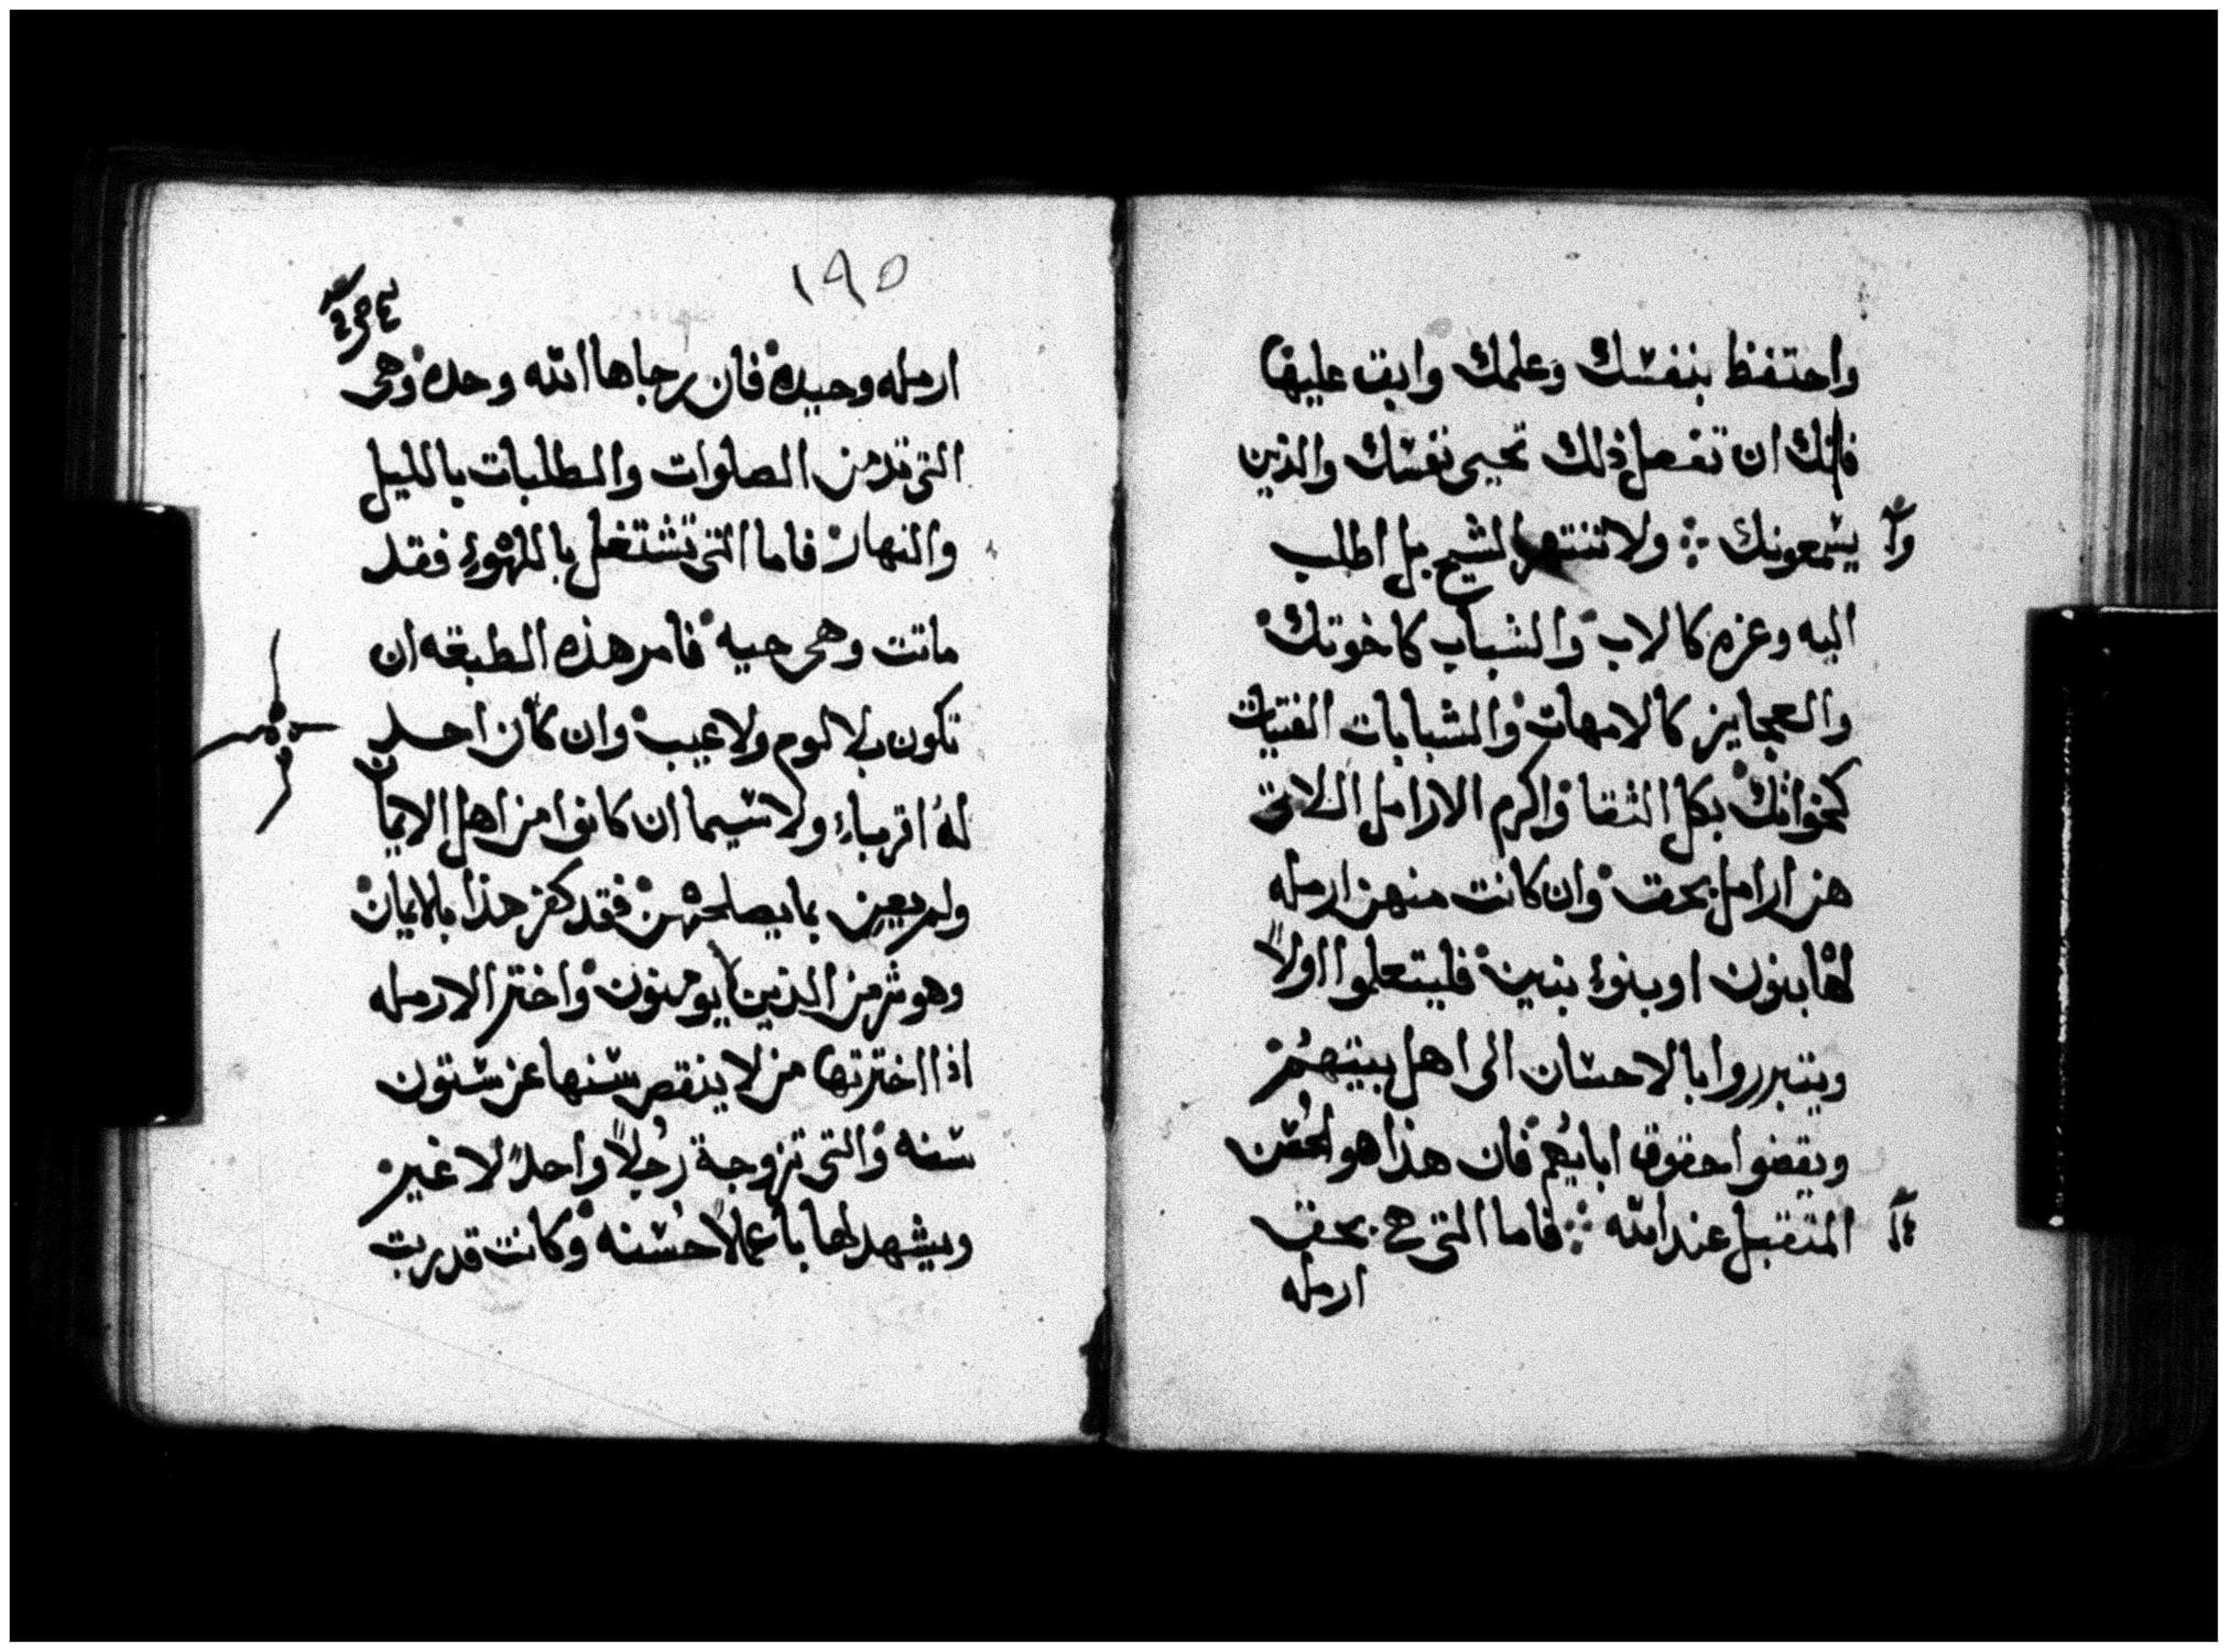 واحتفظ بنفسك وعلمك وابق عليها
فانك ان تفعل ذلك تحيي نفسك والذين
يسمعونك ولا تنتهر الشيخ بل اطلب
اليه وعزه كالاب والشباب كاخوتك
والعجايز كالامهات والشبابات الفتيات
كخواتك بكل النقا واكرم الارامل اللاتي
هن ارامل بحق وان كانت منهن ارمله
لها بنون او بنوء بنين فليتعلموا اولاً
ويتبرروا بالاحسان الى اهل بيتهم
ويقضوا حقوق ابايهم فان هذا هو الحسن
المتقبل عند الله فاما التي هي بحق
ارمله
١٩٥
ارمله وحيده فان رجاها الله وحده وهي
التي تدمن الصلوات والطلبات بالليل
والنهار فاما التي تشتغل باللهوء فقد
ماتت وهي حيه فامر هذه الطبقه ان
تكون بلا لوم ولا عيب وان كان احد
له اقرباء ولا سيما ان كانوا من اهل الايمان
ولم يعين بما يصلحهن فقد كفر هذا بالايمان
وهو شر من الذين لا يومنون واختر الارمله
اذا اخترتها من لا ينقص سنها عن ستون
سنه والتي تزوجة رُجلاً واحدً لا غير
ويشهد لها باعمالاً حسنه وكانت قد ربت